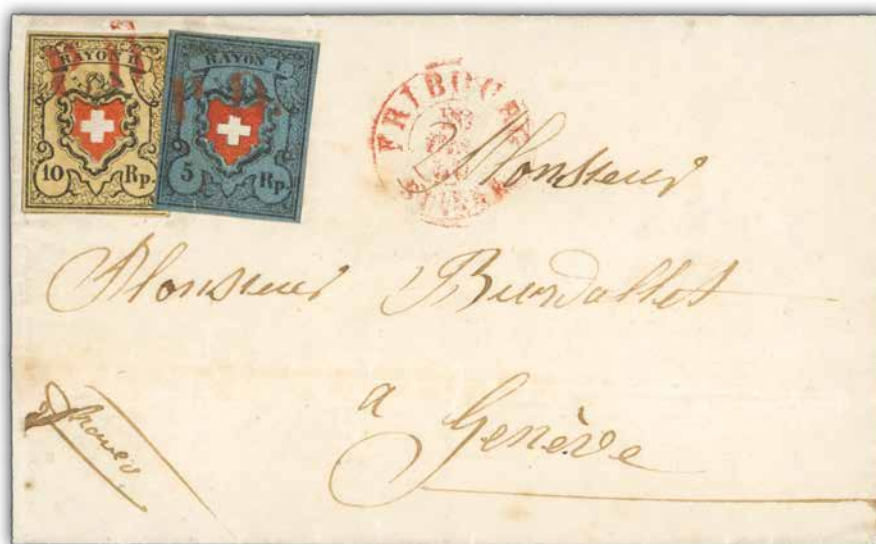 RAYON II
10 Rp.
RAYON I
5 Rp.
P.D.
FRIBOURG
Monsieur
Monsieur Burdallet
a
Genève
franco